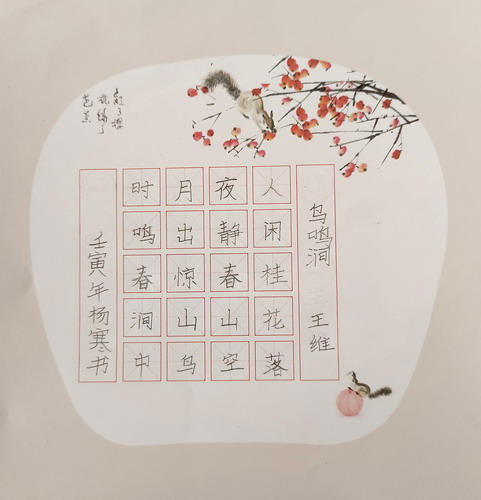 鸟鸣涧 王维
人闲桂花落
夜静春山空
月出惊山鸟
时鸣春涧中
壬寅年杨寒书